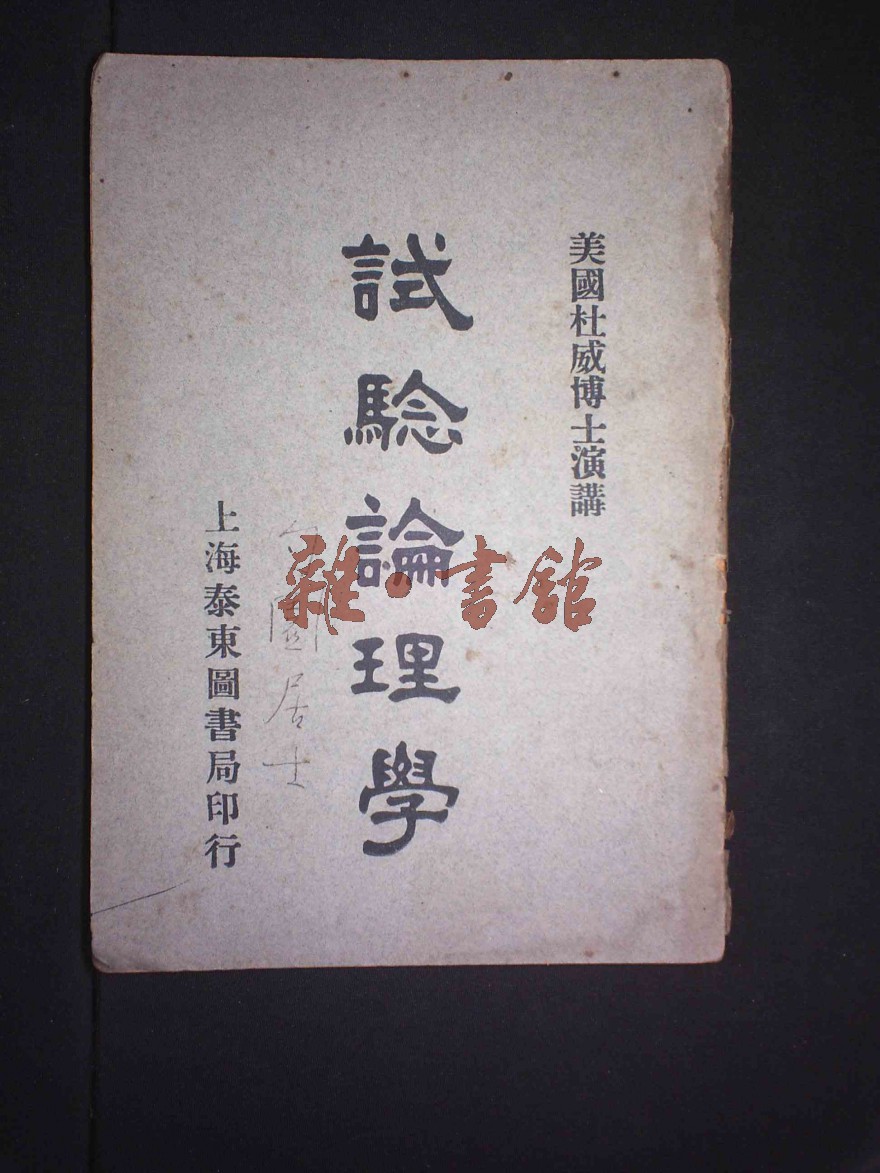 美國杜威博士演講
試騐論理學
居士
上海泰東圖書局印行
雜·書館